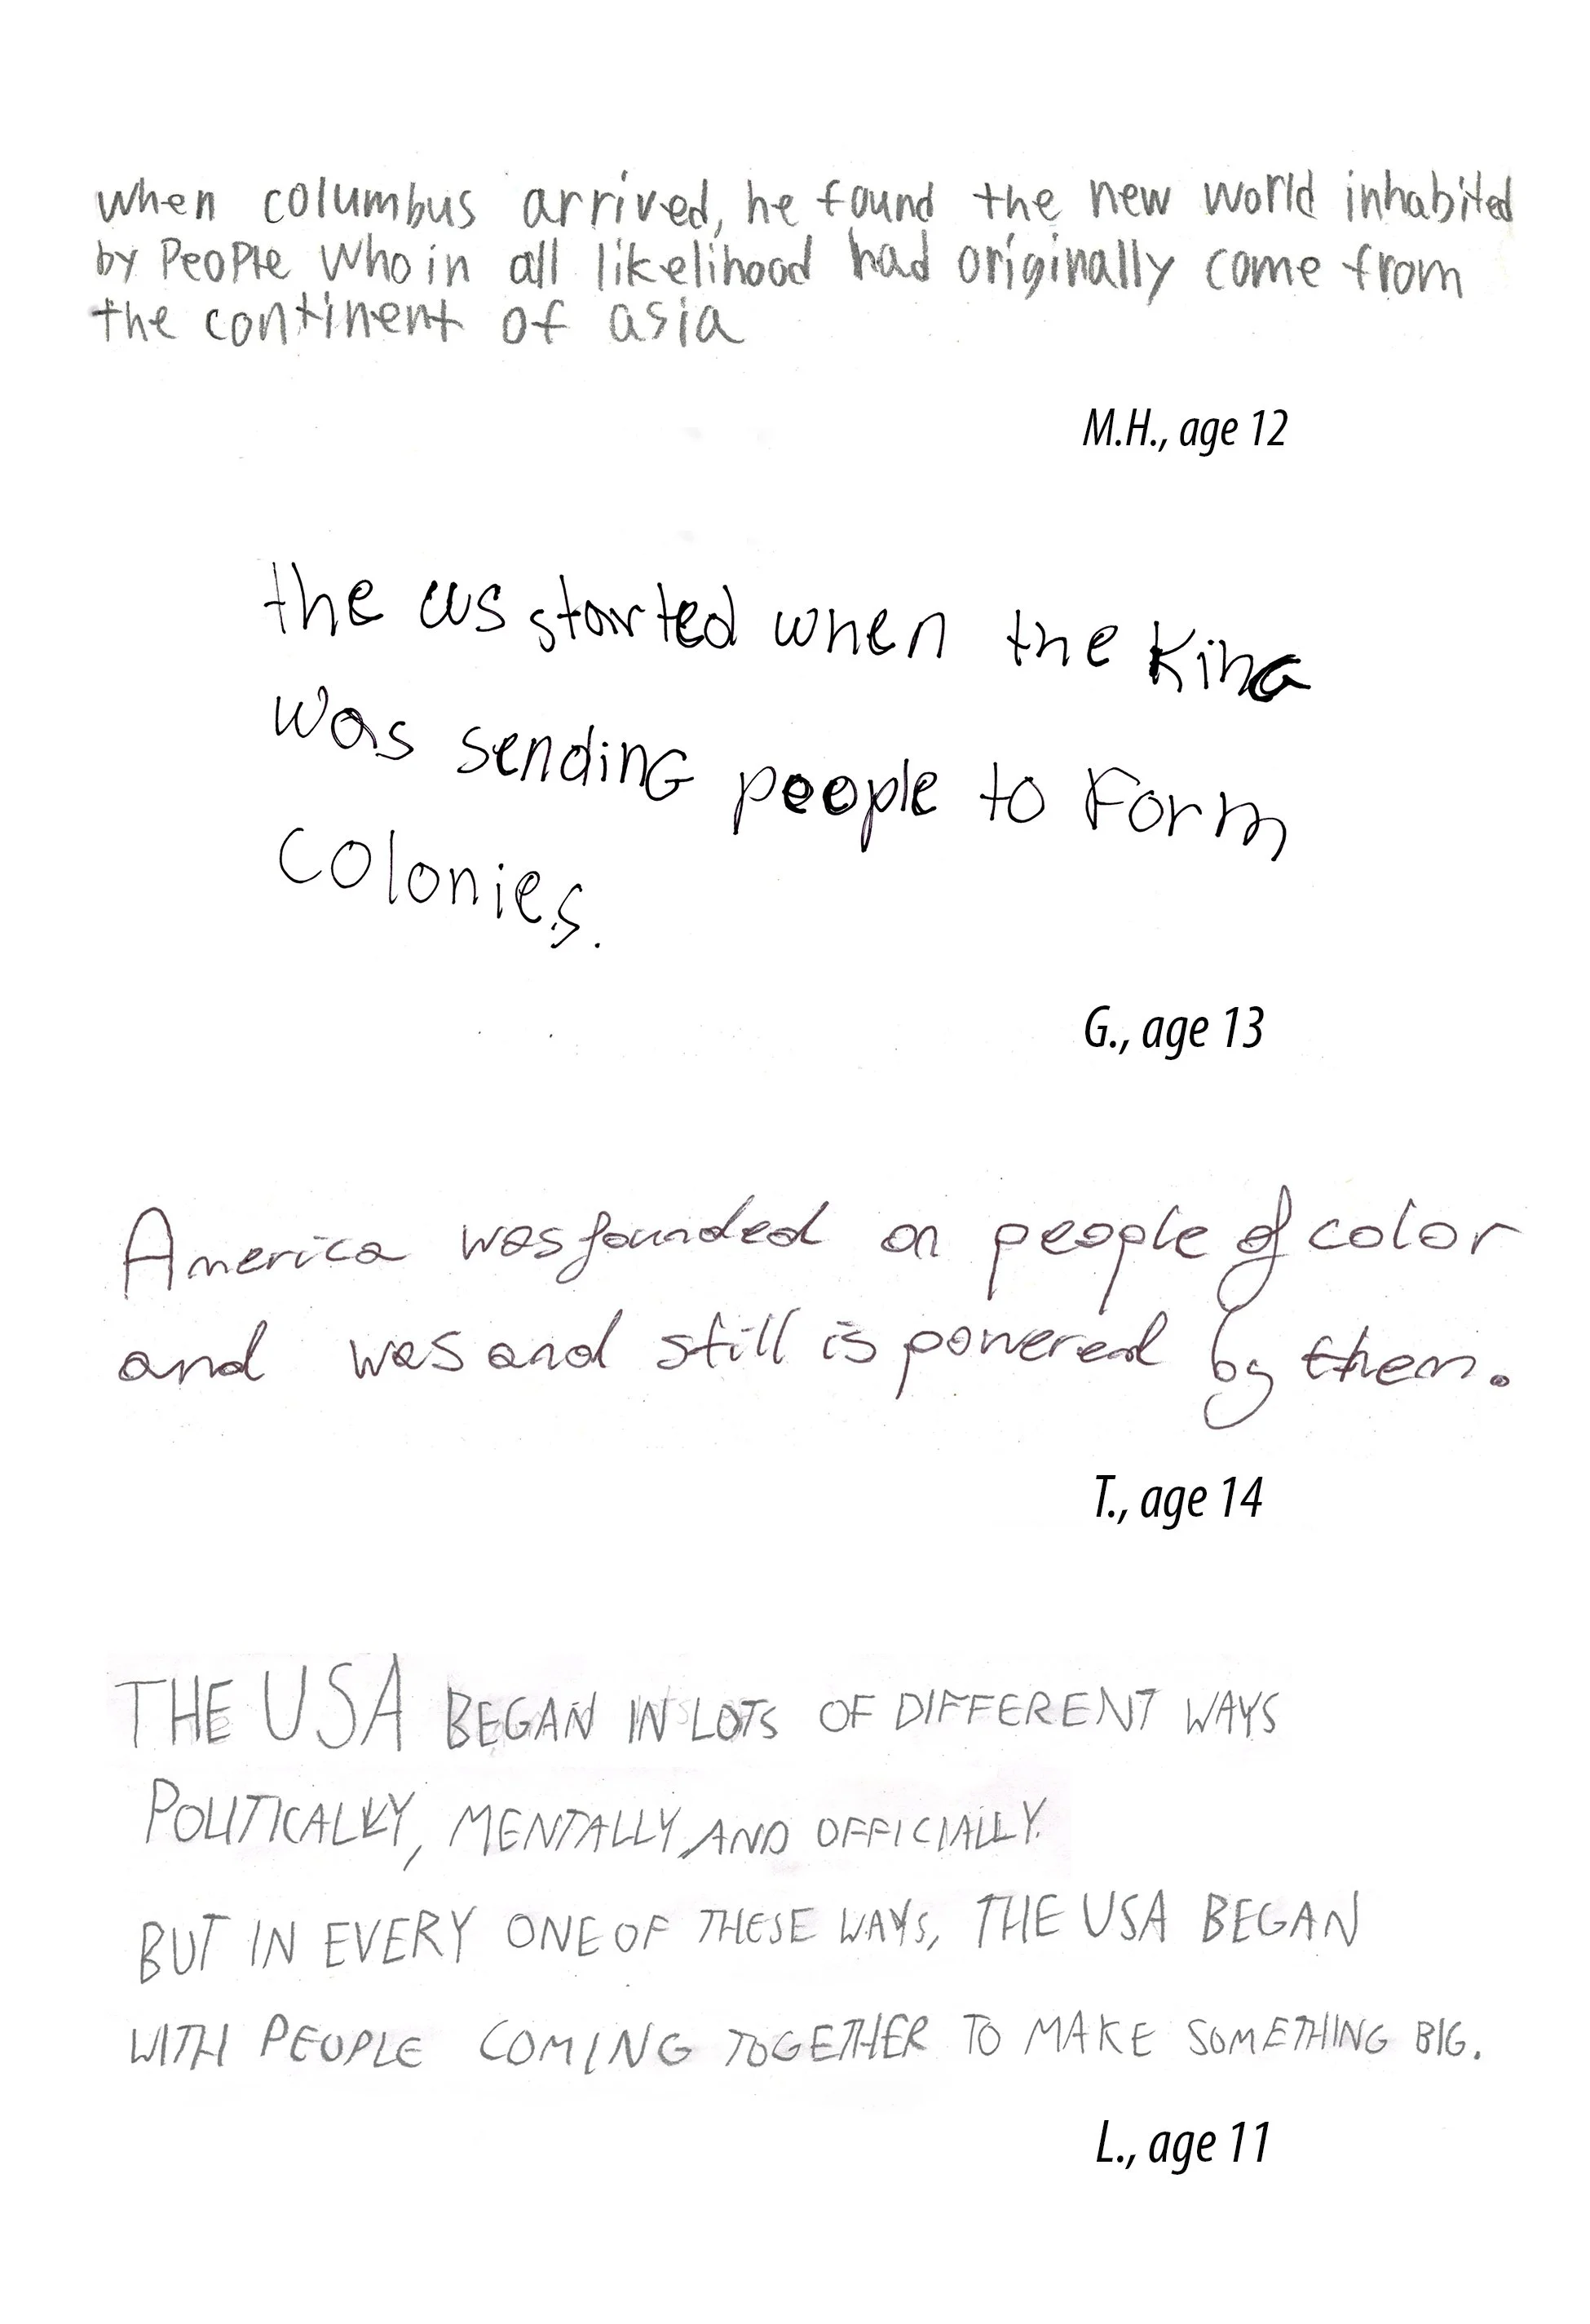 when columbus arrived, he found the new world inhabited
by People who in all likelihood had originally come from
the continent of asia
M.H., age 12
the us started when the King
was sending people to Form
Colonies.
G., age 13
America was founded on people of color
and was and still is powered by them.
T., age 14
THE USA BEGAN IN LOTS OF DIFFERENT WAYS
POLITICALLY, MENTALLY, AND OFFICIALLY.
BUT IN EVERY ONE OF THESE WAYS, THE USA BEGAN
WITH PEOPLE COMING TOGETHER TO MAKE SOMETHING BIG.
L., age 11